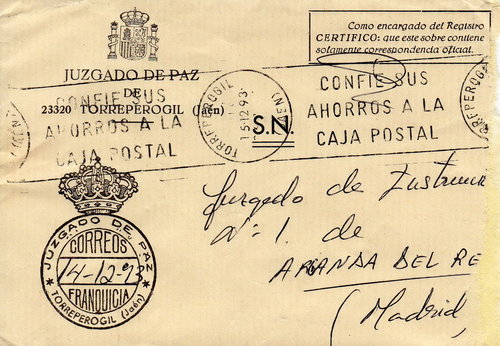 Como encargado del Registro
CERTIFICO: que este sobre contiene
solamente correspondencia oficial.
JUZGADO DE PAZ
DE
23320 TORREPEROGIL (Jaén)
CONFIE SUS
AHORROS A LA
CAJA POSTAL
TORREPEROGIL
15.12.93
(JAEN)
CONFIE SUS
AHORROS A LA
CAJA POSTAL
S.N.
JUZGADO DE PAZ
CORREOS
14-12-93
FRANQUICIA
TORREPEROGIL (Jaén)
Juzgado de
nº 1. de
ARANDA DEL RE
(Madrid)